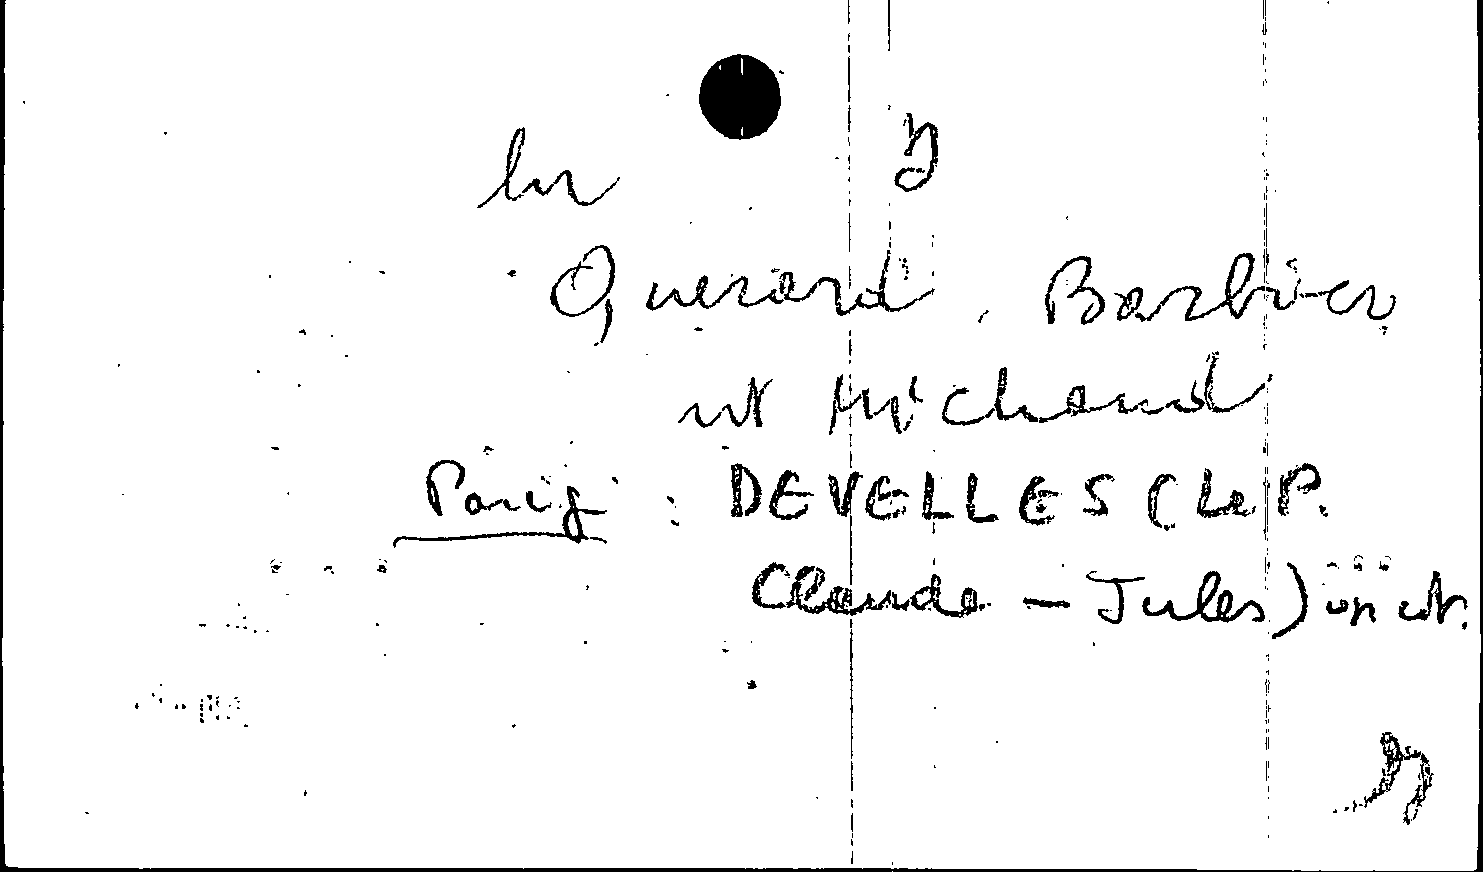 Querard, Barbier,
et Michaud
Parigi : DEVELLES (Le P.
Claude - Jules)